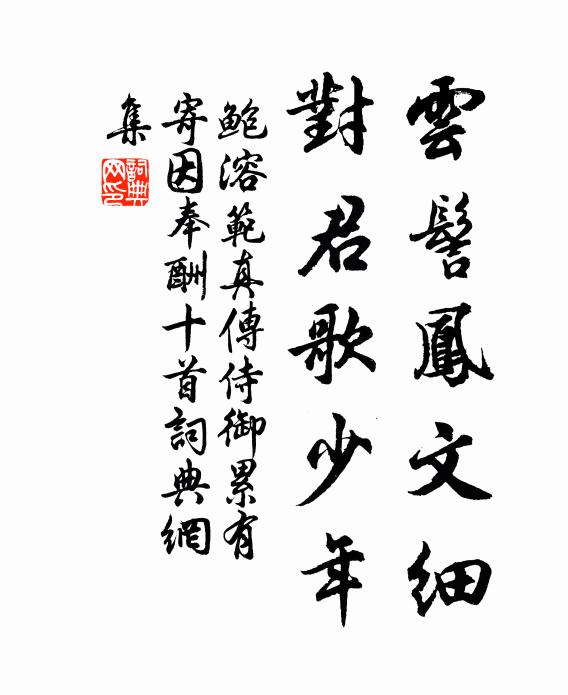 雲髻鳳文細
對君歌少年
鮑溶範真傳侍御累有
寄因奉酬十首詞典網
集
詞典
网印